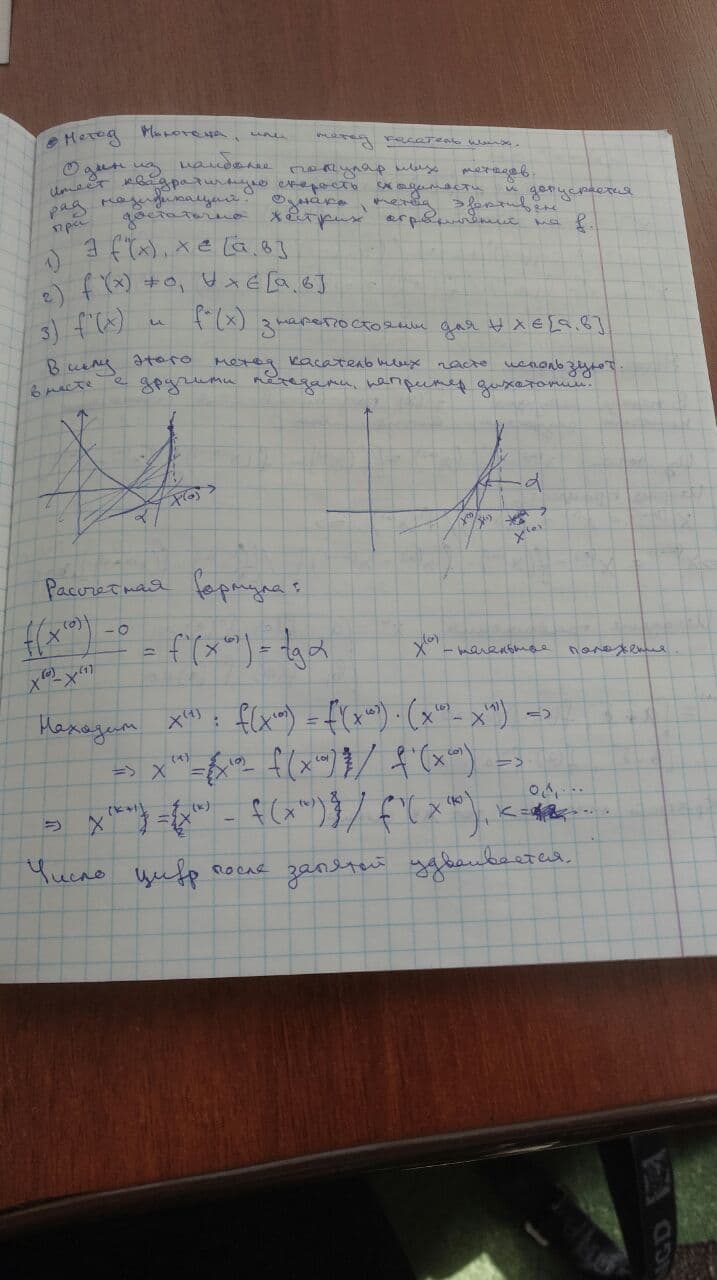 • Метод Ньютона, или метод касательных.
Один из наиболее популярных методов.
имеет квадратичную скорость сходимости и допускается
ряд модификаций. Однако, метод эфективен
при достаточно жёстких ограничениях на f.
1) ∃ f''(x), x ∈ [a,b]
2) f'(x) ≠ 0, ∀ x ∈ [a,b]
3) f'(x) и f''(x) знакопостоянны для ∀ x ∈ [a,b]
В силу этого метод касательных часто используют
вместе с другими методами, например дихотомии.
α x⁽⁰⁾
α
x⁽¹⁾ x⁽⁰⁾
Расчетная формула:
(f(x⁽⁰⁾) - 0) / (x⁽⁰⁾ - x⁽¹⁾) = f'(x⁽⁰⁾) = tg α x⁽⁰⁾ - начальное положение.
Находим x⁽¹⁾ : f(x⁽⁰⁾) = f'(x⁽⁰⁾) · (x⁽⁰⁾ - x⁽¹⁾) =>
=> x⁽¹⁾ = x⁽⁰⁾ - f(x⁽⁰⁾) / f'(x⁽⁰⁾) =>
=> x⁽ᵏ⁺¹⁾ = x⁽ᵏ⁾ - f(x⁽ᵏ⁾) / f'(x⁽ᵏ⁾), k = 0,1,...
Число цифр после запятой удваивается.